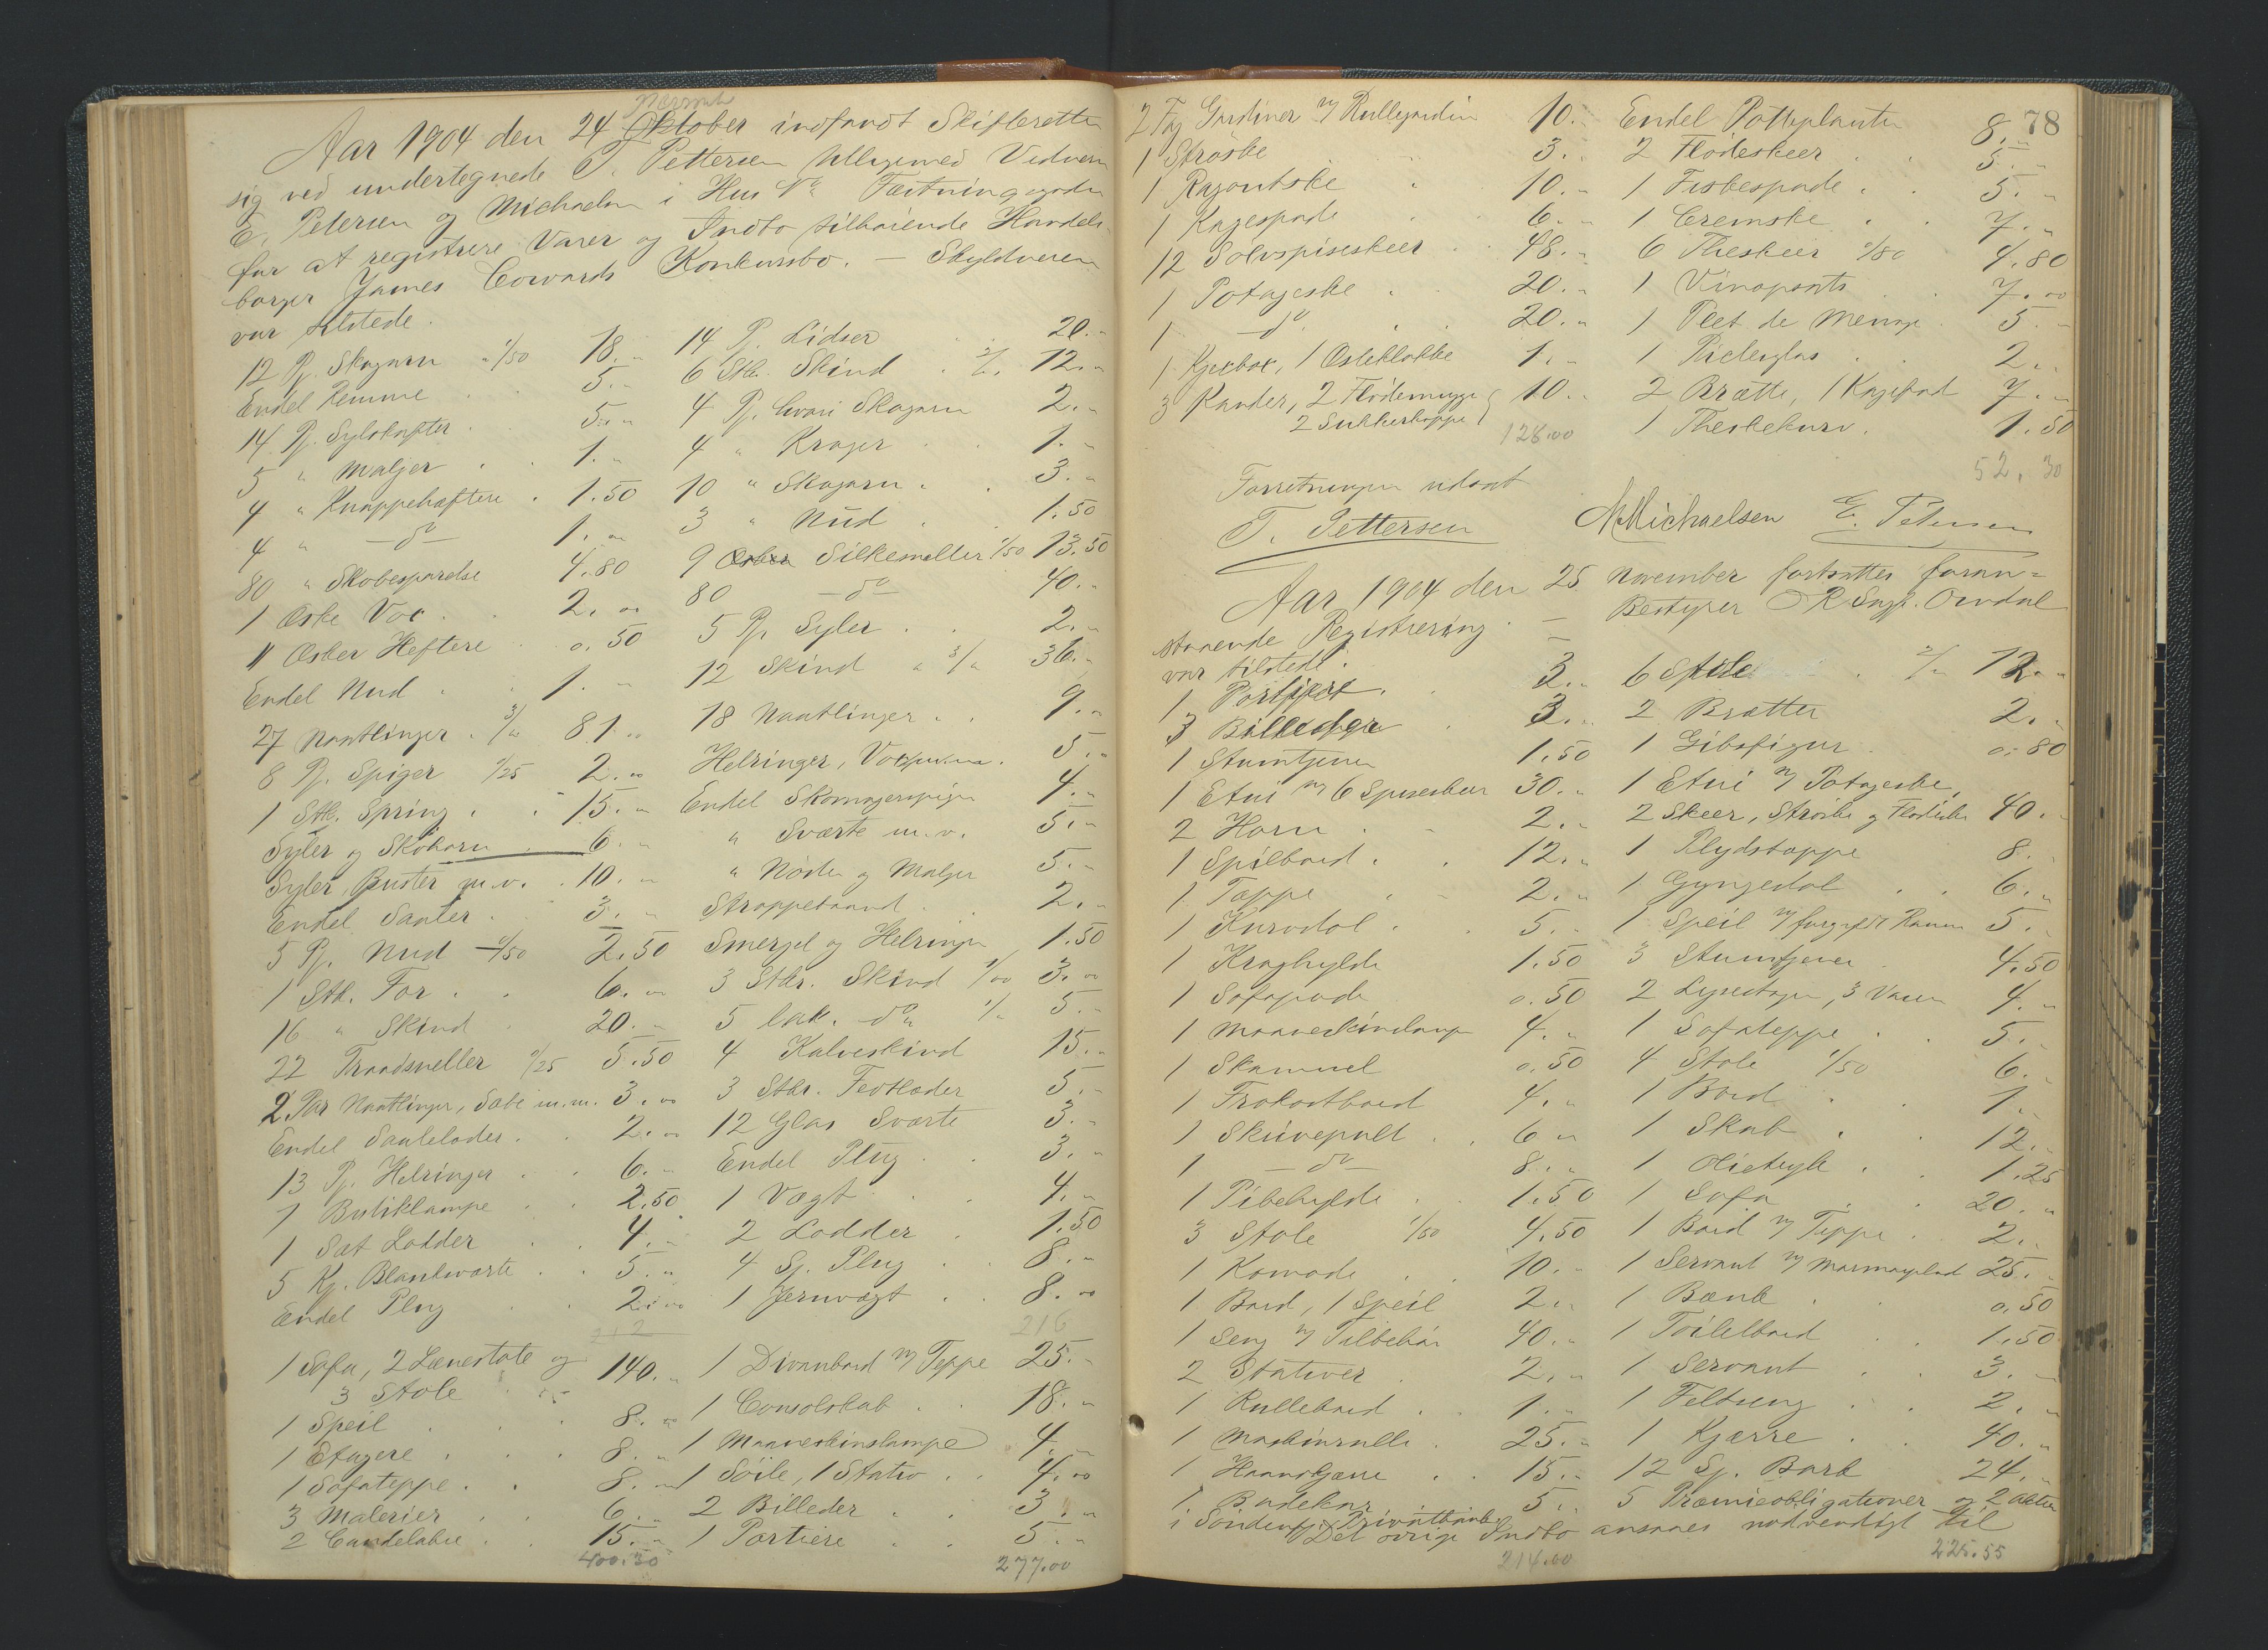 November
Aar 1904 den 24 Oktober indfandt Skifteretten
sig ved undertegnede T. Pettersen tilligemed Vidnerne
E. Petersen og Michaelsen i Hus No Fæstningsgaden
for at registrere Varer og Indbo tilhørende Handels-
borger James Cowards Konkursbo. — Skyldneren
var tilstede.
12 Pj. Skogarn 1/50 18.„
Endel Remme 5.„
14 Pj. Sylskafter 5.„
5 „ Maljer 1.„
4 „ Knappehæftere 1.50
4 „ —do— 1.„
80 „ Skobesparelse 4.80
1 Æske Vox 2.„
11 Æsker Heftere 0.50
Endel Nud 1.„
27 Naatlinger 3/„ 81.„
8 Pj. Spiger 0/25 2.„
1 Stk. Spring 15.„
Syler og Skohorn 6.„
Syler, Buster m.v. 10.„
Endel Saaler 3.„
5 Pj. Nud 0/50 2.50
1 Stk. For 6.„
16 „ Skind 20.„
22 Traadsneller 0/25 5.50
2 Par Naatlinger, Sæbe m.m. 3.„
Endel Saalelæder 2.„
13 Pj. Helringer 6.„
1 Butiklampe 2.50
1 Sæt Lodder 4.„
5 Kg. Blanksværte 5.„
Endel Plug 2.„
212
1 Sofa, 2 Lænestole og
3 Stole 140.„
1 Speil 8.„
1 Etagere 8.„
1 Sofateppe 8.„
3 Malerier 6.„
2 Candelabre 15.„
400.30
14 Pj. Lidser 20.„
6 Stk. Skind 2/„ 12.„
4 Pj. hvari Skogarn 2.„
4 „ Kroger 1.„
10 „ Skogarn 3.„
3 „ Nud 1.50
9 Æsker Silkesneller 1/50 13.50
80 —do— 40.„
5 Pj. Syler 2.„
12 Skind 3/„ 36.„
18 Naatlinger 9.„
Helringer, 5.„
Endel Skomagerspiger 4.„
„ Sværte m.v. 5.„
„ Nøder og Maljer 5.„
Stroppebaand 2.„
Smergel og Helringer 1.50
3 Stkr. Skind 1/00 3.„
5 lak. do 1/„ 5.„
4 Kalveskind 15.„
3 Stkr. Fedtlæder 5.„
12 Glas Sværte 3.„
Endel Plug 3.„
1 Vægt 4.„
2 Lodder 1.50
4 Sj. Plug 8.„
1 Jernvægt 8.„
216
1 Divanbord m/ Teppe 25.„
1 Consolskab 18.„
1 Maaneskinslampe 4.„
1 Søile, 1 Stativ 4.„
2 Billeder 3.„
1 Portiere 5.„
277.00
78
2 Fag Gardiner m/ Rullegardin 10.„
1 Strøske 3.„
1 Ragoutske 10.„
1 Kagespade 6.„
12 Sølvspiseskeer 48.„
1 Potageske 20.„
1 —do— 20.„
1 Kjexbox, 1 Osteklokke 1.„
3 Kander, 2 Flødemugge 10.„
2 Sukkerkopper
128.00
Endel Potteplanter 8.„
2 Flødeskeer 5.„
1 Fiskespade 5.„
1 Cremske 7.„
6 Theskeer 0/80 4.80
1 Vinopsats 7.„
1 Plet de Menage 5.„
1 Piclesglas 2.„
2 Brætte, 1 Kagefad 7.„
1 Theskekurv 1.50
52.30
Forretningen udsat
T. Pettersen
M Michaelsen E. Petersen
Aar 1904 den 25 November fortsattes foran=
staaende Registrering. — Bestyrer ORSagf. Omdal
var tilstede.
1 3.„
3 Billeder 3.„
1 Stumtjener 1.50
1 Etui m/ 6 Spiseskeer 30.„
2 Horn 2.„
1 Spilbord 12.„
1 Teppe 2.„
1 Kurvstol 5.„
1 Kraghylde 1.50
1 Sofapude 0.50
1 Maaneskinslampe 4.„
1 Skammel 0.50
1 Frokostbord 4.„
1 Skrivepult 6.„
1 —do— 8.„
1 Pibehylde 1.50
3 Stole 1/50 4.50
1 Komode 10.„
1 Bord, 1 Speil 2.„
1 Seng m/ Tilbehør 40.„
2 Stativer 2.„
1 Rullebord 1.„
1 Maskinrulle 25.„
1 Haandkjærre 15.„
1 Badekar 5.„
6 Stole 2/„ 12.„
2 Brætter 2.„
1 Gibsfigur 0.80
1 Etui m/ Potageske,
2 Skeer, Strøske og Flødeske 40.„
1 Plydsteppe 8.„
1 Gyngestol 6.„
1 Speil m/ forgyldt Ramme 5.„
3 Stumtjener 4.50
2 Lysestager, 3 Vaser 4.„
1 Sofateppe 5.„
4 Stole 1/50 6.„
1 Bord 1.„
1 Skab 12.„
1 Olietryk 1.25
1 Sofa 20.„
1 Bord m/ Teppe 2.„
1 Servant m/ Marmorplade 25.„
1 Bænk 0.50
1 Toiletbord 1.50
1 Servant 3.„
1 Feltseng 2.„
1 Kjærre 40.„
12 Sj. Bark 24.„
5 Præmieobligationer og 2 Aktier
i Søndenfj. Privatbank
Det øvrige Indbo ansaaes nødvendigt til
214.00
225.55